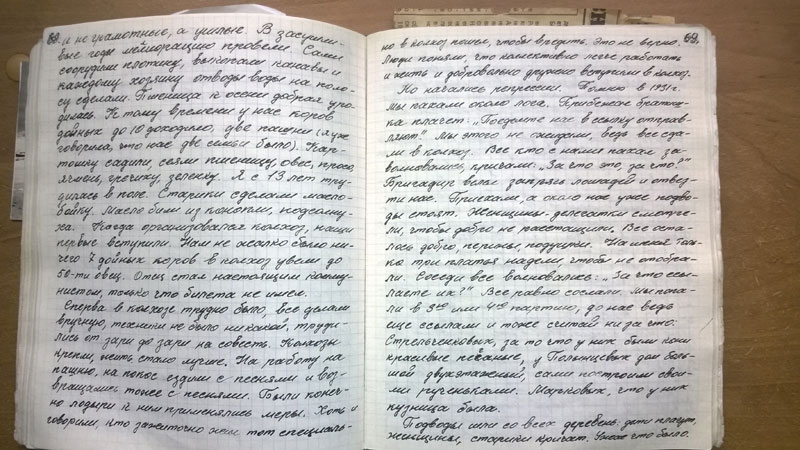 68.
и не грамотные, а умные. В засушли-
вые годы мелиорацию провели. Сами
соорудили плотину, выкопали канавы и
каждому хозяину отводы воды на поло-
су сделали. Пшеница к осени добрая уро-
дилась. К тому времени у нас коров
дойных до 10 доходило, две пашни (я уже
говорила, что нас две семьи было). Кар-
тошку садили, сеяли пшеницу, овес, просо,
ячмень, гречиху, зеленку. Я с 13 лет тру-
дилась в поле. Старики сделали масло-
бойку. Масло били из конопли, подсолну-
ха. Когда организовался колхоз, наши
первые вступили. Нам не жалко было ни-
чего 7 дойных коров в колхоз увели до
50-ти овец. Отец стал настоящим комму-
нистом, только что билета не имел.
Сперва в колхозе трудно было, все делали
вручную, техники не было никакой, труди-
лись от зари до зари на совесть. Колхозы
крепли, жить стало лучше. На работу на
пашню, на покос ездили с песнями и воз-
вращались тоже с песнями. Были конеч-
но лодыри к ним применялись меры. Хоть и
говорили, кто зажиточно жил, тот специаль-
69.
но в колхоз пошел, чтобы вредить. Это не верно.
Люди поняли, что коллективно легче работать
и жить и добровольно дружно вступили в колхоз.
Но начались репрессии. Помню в 1931г.
Мы пахали около лога. Прибежал братиш-
ка плачет: "Поедемте нас в ссылку отправ-
ляют." Мы этого не ожидали, ведь все сда-
ли в колхоз. Все кто с нами пахал за-
волновались, кричали: "За что это, за что?"
Бригадир велел запрягли лошадей и отвез-
ти нас. Приехали, а около нас уже подво-
ды стоят. Женщины-делегатки смотре-
ли, чтобы добро не растащили. Все оста-
лось добро, перины, подушки. На меня толь-
ко три платья надели, чтобы не отобра-
ли. Соседи все волновались: "За что ссы-
лаете их?" Все равно сослали. Мы попа-
ли в 3ую или 4ую партию, до нас ведь
еще ссылали и тоже считай ни за что:
Стрельченковых, за то что у них были кони
красивые пеганые, у Полынцевых дом боль-
шой двухэтажный, сами построили свои-
ми рученьками. Марковых, что у них
кузница была.
Подводы шли со всех деревень: дети плачут,
женщины, старики кричат. Ужас что было.